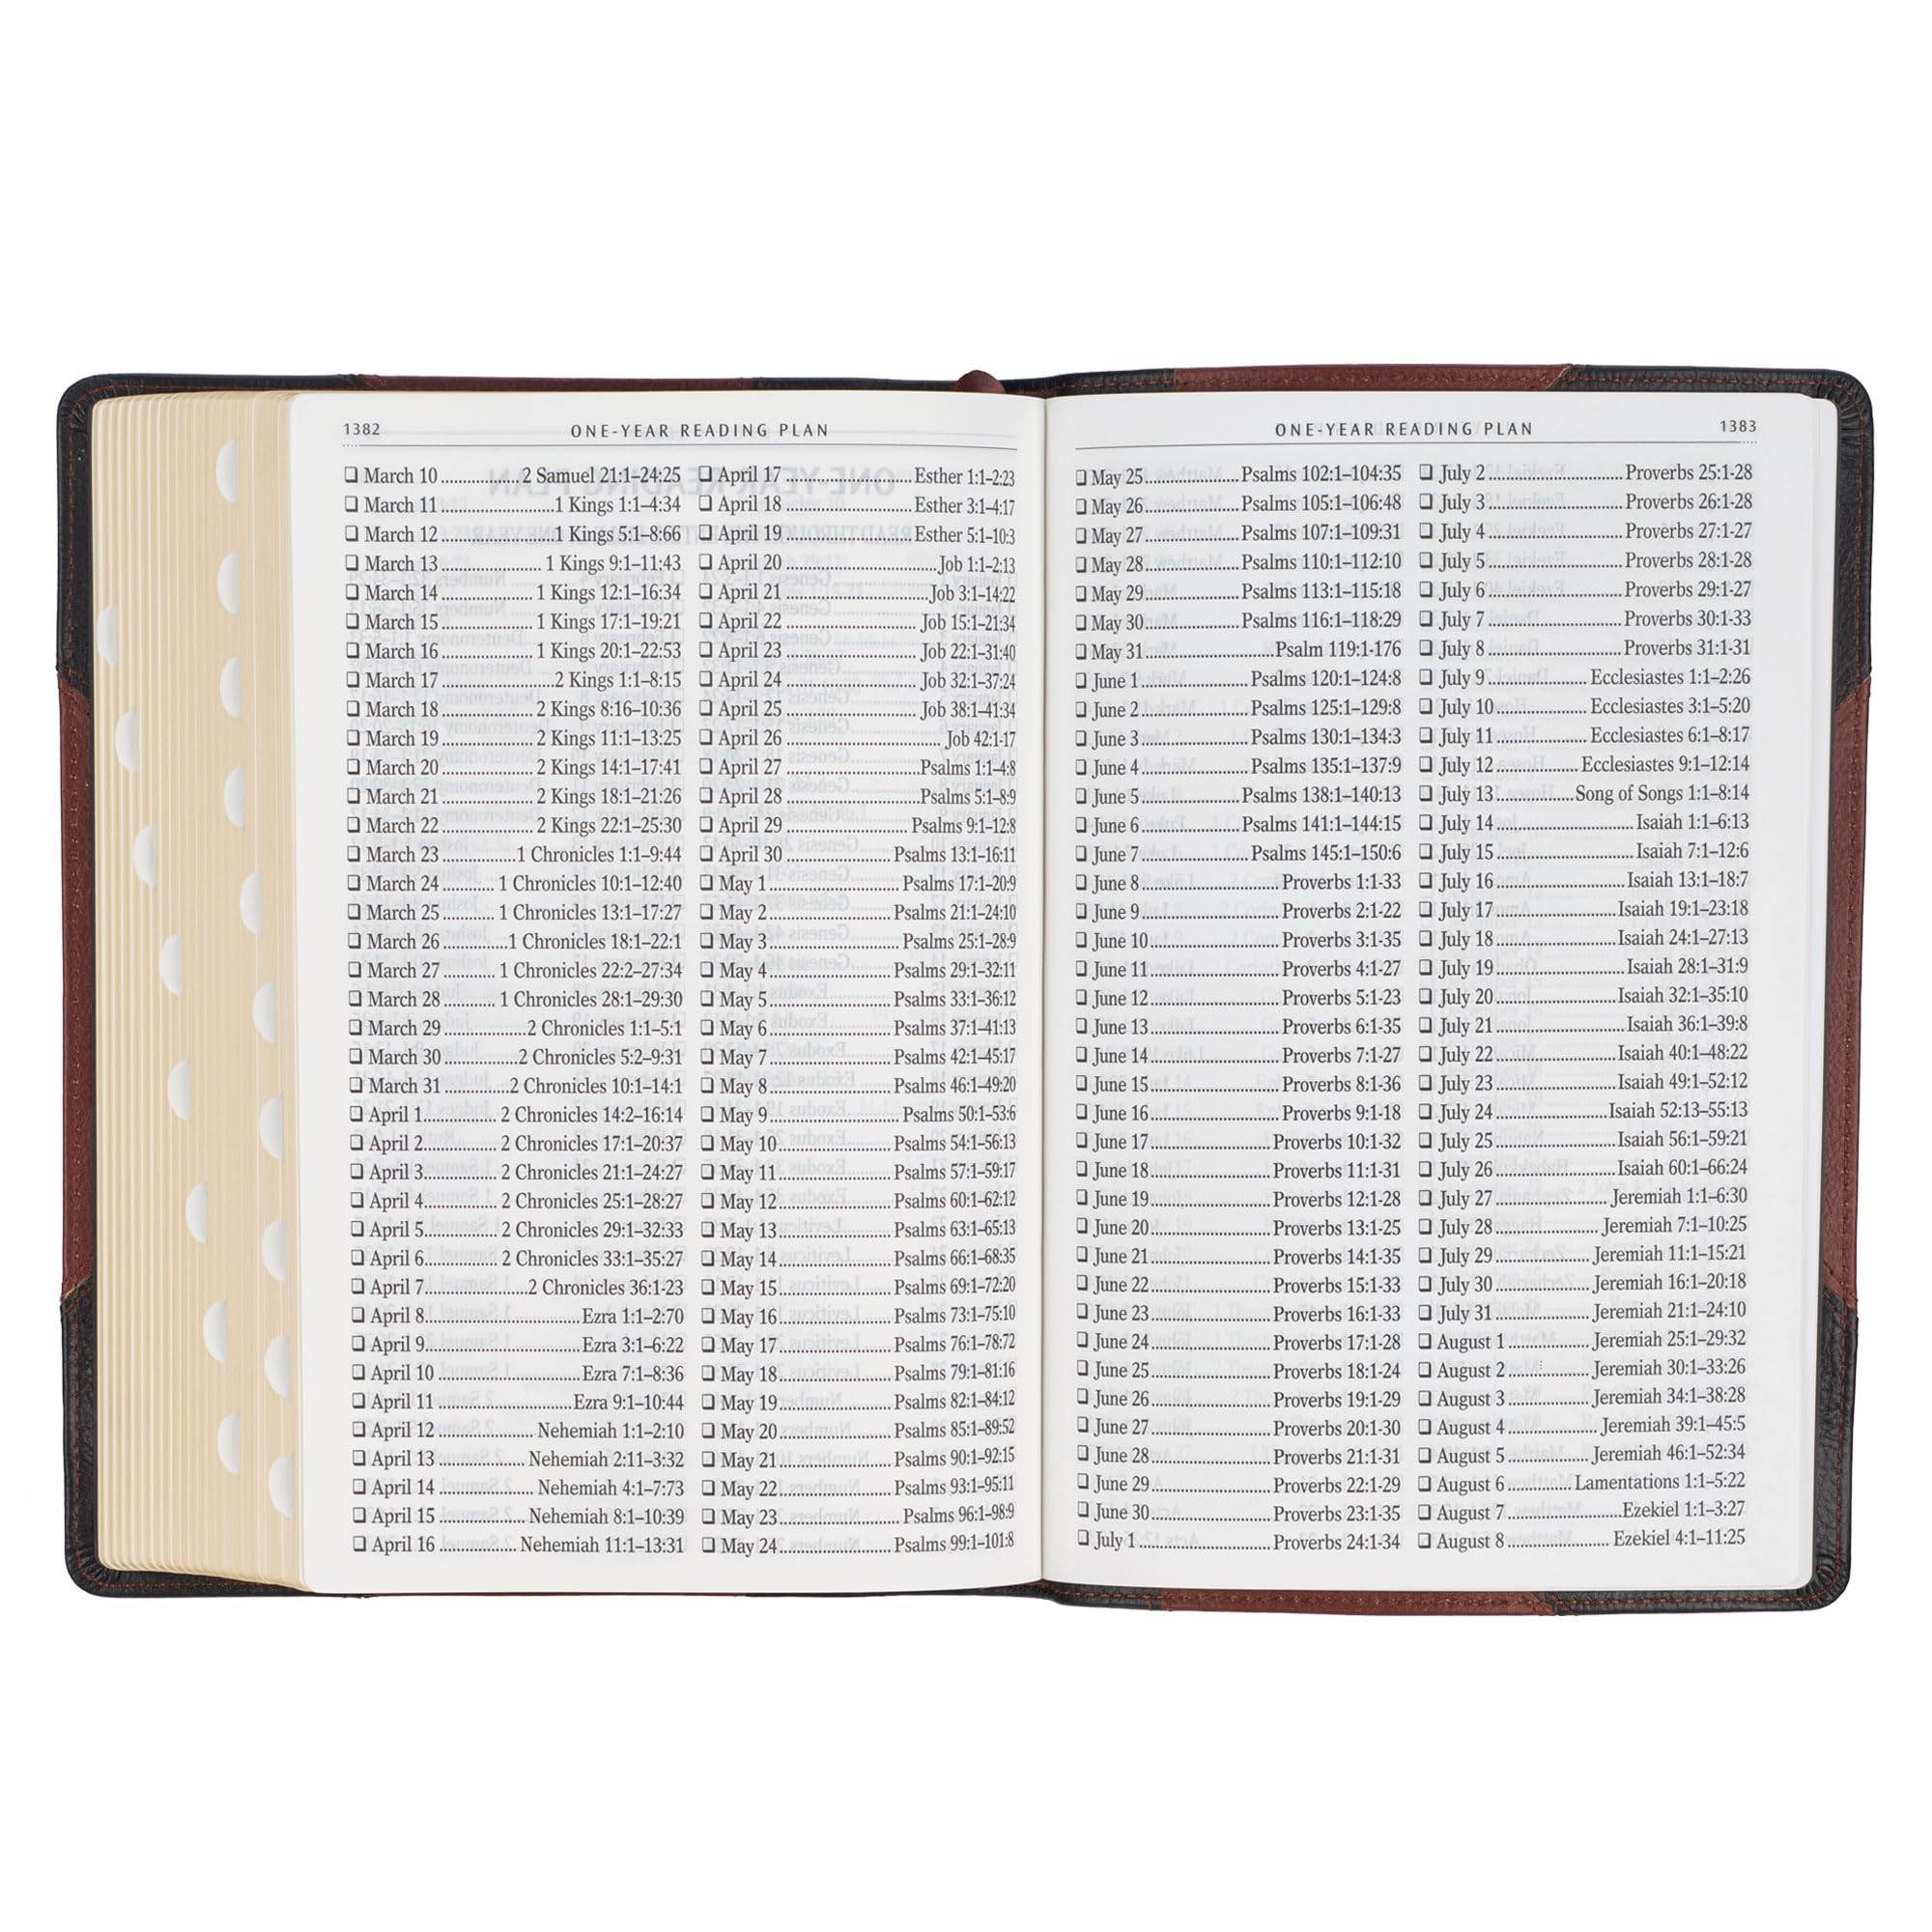 1382 ONE-YEAR READING PLAN
❑ March 10 2 Samuel 21:1–24:25
❑ March 11 1 Kings 1:1–4:34
❑ March 12 1 Kings 5:1–8:66
❑ March 13 1 Kings 9:1–11:43
❑ March 14 1 Kings 12:1–16:34
❑ March 15 1 Kings 17:1–19:21
❑ March 16 1 Kings 20:1–22:53
❑ March 17 2 Kings 1:1–8:15
❑ March 18 2 Kings 8:16–10:36
❑ March 19 2 Kings 11:1–13:25
❑ March 20 2 Kings 14:1–17:41
❑ March 21 2 Kings 18:1–21:26
❑ March 22 2 Kings 22:1–25:30
❑ March 23 1 Chronicles 1:1–9:44
❑ March 24 1 Chronicles 10:1–12:40
❑ March 25 1 Chronicles 13:1–17:27
❑ March 26 1 Chronicles 18:1–22:1
❑ March 27 1 Chronicles 22:2–27:34
❑ March 28 1 Chronicles 28:1–29:30
❑ March 29 2 Chronicles 1:1–5:1
❑ March 30 2 Chronicles 5:2–9:31
❑ March 31 2 Chronicles 10:1–14:1
❑ April 1 2 Chronicles 14:2–16:14
❑ April 2 2 Chronicles 17:1–20:37
❑ April 3 2 Chronicles 21:1–24:27
❑ April 4 2 Chronicles 25:1–28:27
❑ April 5 2 Chronicles 29:1–32:33
❑ April 6 2 Chronicles 33:1–35:27
❑ April 7 2 Chronicles 36:1-23
❑ April 8 Ezra 1:1–2:70
❑ April 9 Ezra 3:1–6:22
❑ April 10 Ezra 7:1–8:36
❑ April 11 Ezra 9:1–10:44
❑ April 12 Nehemiah 1:1–2:10
❑ April 13 Nehemiah 2:11–3:32
❑ April 14 Nehemiah 4:1–7:73
❑ April 15 Nehemiah 8:1–10:39
❑ April 16 Nehemiah 11:1–13:31
❑ April 17 Esther 1:1–2:23
❑ April 18 Esther 3:1–4:17
❑ April 19 Esther 5:1–10:3
❑ April 20 Job 1:1–2:13
❑ April 21 Job 3:1–14:22
❑ April 22 Job 15:1–21:34
❑ April 23 Job 22:1–31:40
❑ April 24 Job 32:1–37:24
❑ April 25 Job 38:1–41:34
❑ April 26 Job 42:1-17
❑ April 27 Psalms 1:1–4:8
❑ April 28 Psalms 5:1–8:9
❑ April 29 Psalms 9:1–12:8
❑ April 30 Psalms 13:1–16:11
❑ May 1 Psalms 17:1–20:9
❑ May 2 Psalms 21:1–24:10
❑ May 3 Psalms 25:1–28:9
❑ May 4 Psalms 29:1–32:11
❑ May 5 Psalms 33:1–36:12
❑ May 6 Psalms 37:1–41:13
❑ May 7 Psalms 42:1–45:17
❑ May 8 Psalms 46:1–49:20
❑ May 9 Psalms 50:1–53:6
❑ May 10 Psalms 54:1–56:13
❑ May 11 Psalms 57:1–59:17
❑ May 12 Psalms 60:1–62:12
❑ May 13 Psalms 63:1–65:13
❑ May 14 Psalms 66:1–68:35
❑ May 15 Psalms 69:1–72:20
❑ May 16 Psalms 73:1–75:10
❑ May 17 Psalms 76:1–78:72
❑ May 18 Psalms 79:1–81:16
❑ May 19 Psalms 82:1–84:12
❑ May 20 Psalms 85:1–89:52
❑ May 21 Psalms 90:1–92:15
❑ May 22 Psalms 93:1–95:11
❑ May 23 Psalms 96:1–98:9
❑ May 24 Psalms 99:1–101:8
ONE-YEAR READING PLAN 1383
❑ May 25 Psalms 102:1–104:35
❑ May 26 Psalms 105:1–106:48
❑ May 27 Psalms 107:1–109:31
❑ May 28 Psalms 110:1–112:10
❑ May 29 Psalms 113:1–115:18
❑ May 30 Psalms 116:1–118:29
❑ May 31 Psalm 119:1-176
❑ June 1 Psalms 120:1–124:8
❑ June 2 Psalms 125:1–129:8
❑ June 3 Psalms 130:1–134:3
❑ June 4 Psalms 135:1–137:9
❑ June 5 Psalms 138:1–140:13
❑ June 6 Psalms 141:1–144:15
❑ June 7 Psalms 145:1–150:6
❑ June 8 Proverbs 1:1-33
❑ June 9 Proverbs 2:1-22
❑ June 10 Proverbs 3:1-35
❑ June 11 Proverbs 4:1-27
❑ June 12 Proverbs 5:1-23
❑ June 13 Proverbs 6:1-35
❑ June 14 Proverbs 7:1-27
❑ June 15 Proverbs 8:1-36
❑ June 16 Proverbs 9:1-18
❑ June 17 Proverbs 10:1-32
❑ June 18 Proverbs 11:1-31
❑ June 19 Proverbs 12:1-28
❑ June 20 Proverbs 13:1-25
❑ June 21 Proverbs 14:1-35
❑ June 22 Proverbs 15:1-33
❑ June 23 Proverbs 16:1-33
❑ June 24 Proverbs 17:1-28
❑ June 25 Proverbs 18:1-24
❑ June 26 Proverbs 19:1-29
❑ June 27 Proverbs 20:1-30
❑ June 28 Proverbs 21:1-31
❑ June 29 Proverbs 22:1-29
❑ June 30 Proverbs 23:1-35
❑ July 1 Proverbs 24:1-34
❑ July 2 Proverbs 25:1-28
❑ July 3 Proverbs 26:1-28
❑ July 4 Proverbs 27:1-27
❑ July 5 Proverbs 28:1-28
❑ July 6 Proverbs 29:1-27
❑ July 7 Proverbs 30:1-33
❑ July 8 Proverbs 31:1-31
❑ July 9 Ecclesiastes 1:1–2:26
❑ July 10 Ecclesiastes 3:1–5:20
❑ July 11 Ecclesiastes 6:1–8:17
❑ July 12 Ecclesiastes 9:1–12:14
❑ July 13 Song of Songs 1:1–8:14
❑ July 14 Isaiah 1:1–6:13
❑ July 15 Isaiah 7:1–12:6
❑ July 16 Isaiah 13:1–18:7
❑ July 17 Isaiah 19:1–23:18
❑ July 18 Isaiah 24:1–27:13
❑ July 19 Isaiah 28:1–31:9
❑ July 20 Isaiah 32:1–35:10
❑ July 21 Isaiah 36:1–39:8
❑ July 22 Isaiah 40:1–48:22
❑ July 23 Isaiah 49:1–52:12
❑ July 24 Isaiah 52:13–55:13
❑ July 25 Isaiah 56:1–59:21
❑ July 26 Isaiah 60:1–66:24
❑ July 27 Jeremiah 1:1–6:30
❑ July 28 Jeremiah 7:1–10:25
❑ July 29 Jeremiah 11:1–15:21
❑ July 30 Jeremiah 16:1–20:18
❑ July 31 Jeremiah 21:1–24:10
❑ August 1 Jeremiah 25:1–29:32
❑ August 2 Jeremiah 30:1–33:26
❑ August 3 Jeremiah 34:1–38:28
❑ August 4 Jeremiah 39:1–45:5
❑ August 5 Jeremiah 46:1–52:34
❑ August 6 Lamentations 1:1–5:22
❑ August 7 Ezekiel 1:1–3:27
❑ August 8 Ezekiel 4:1–11:25